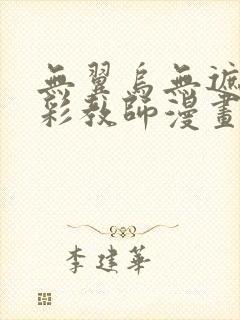 無翼烏無遮
彩教師漫畫
李建華